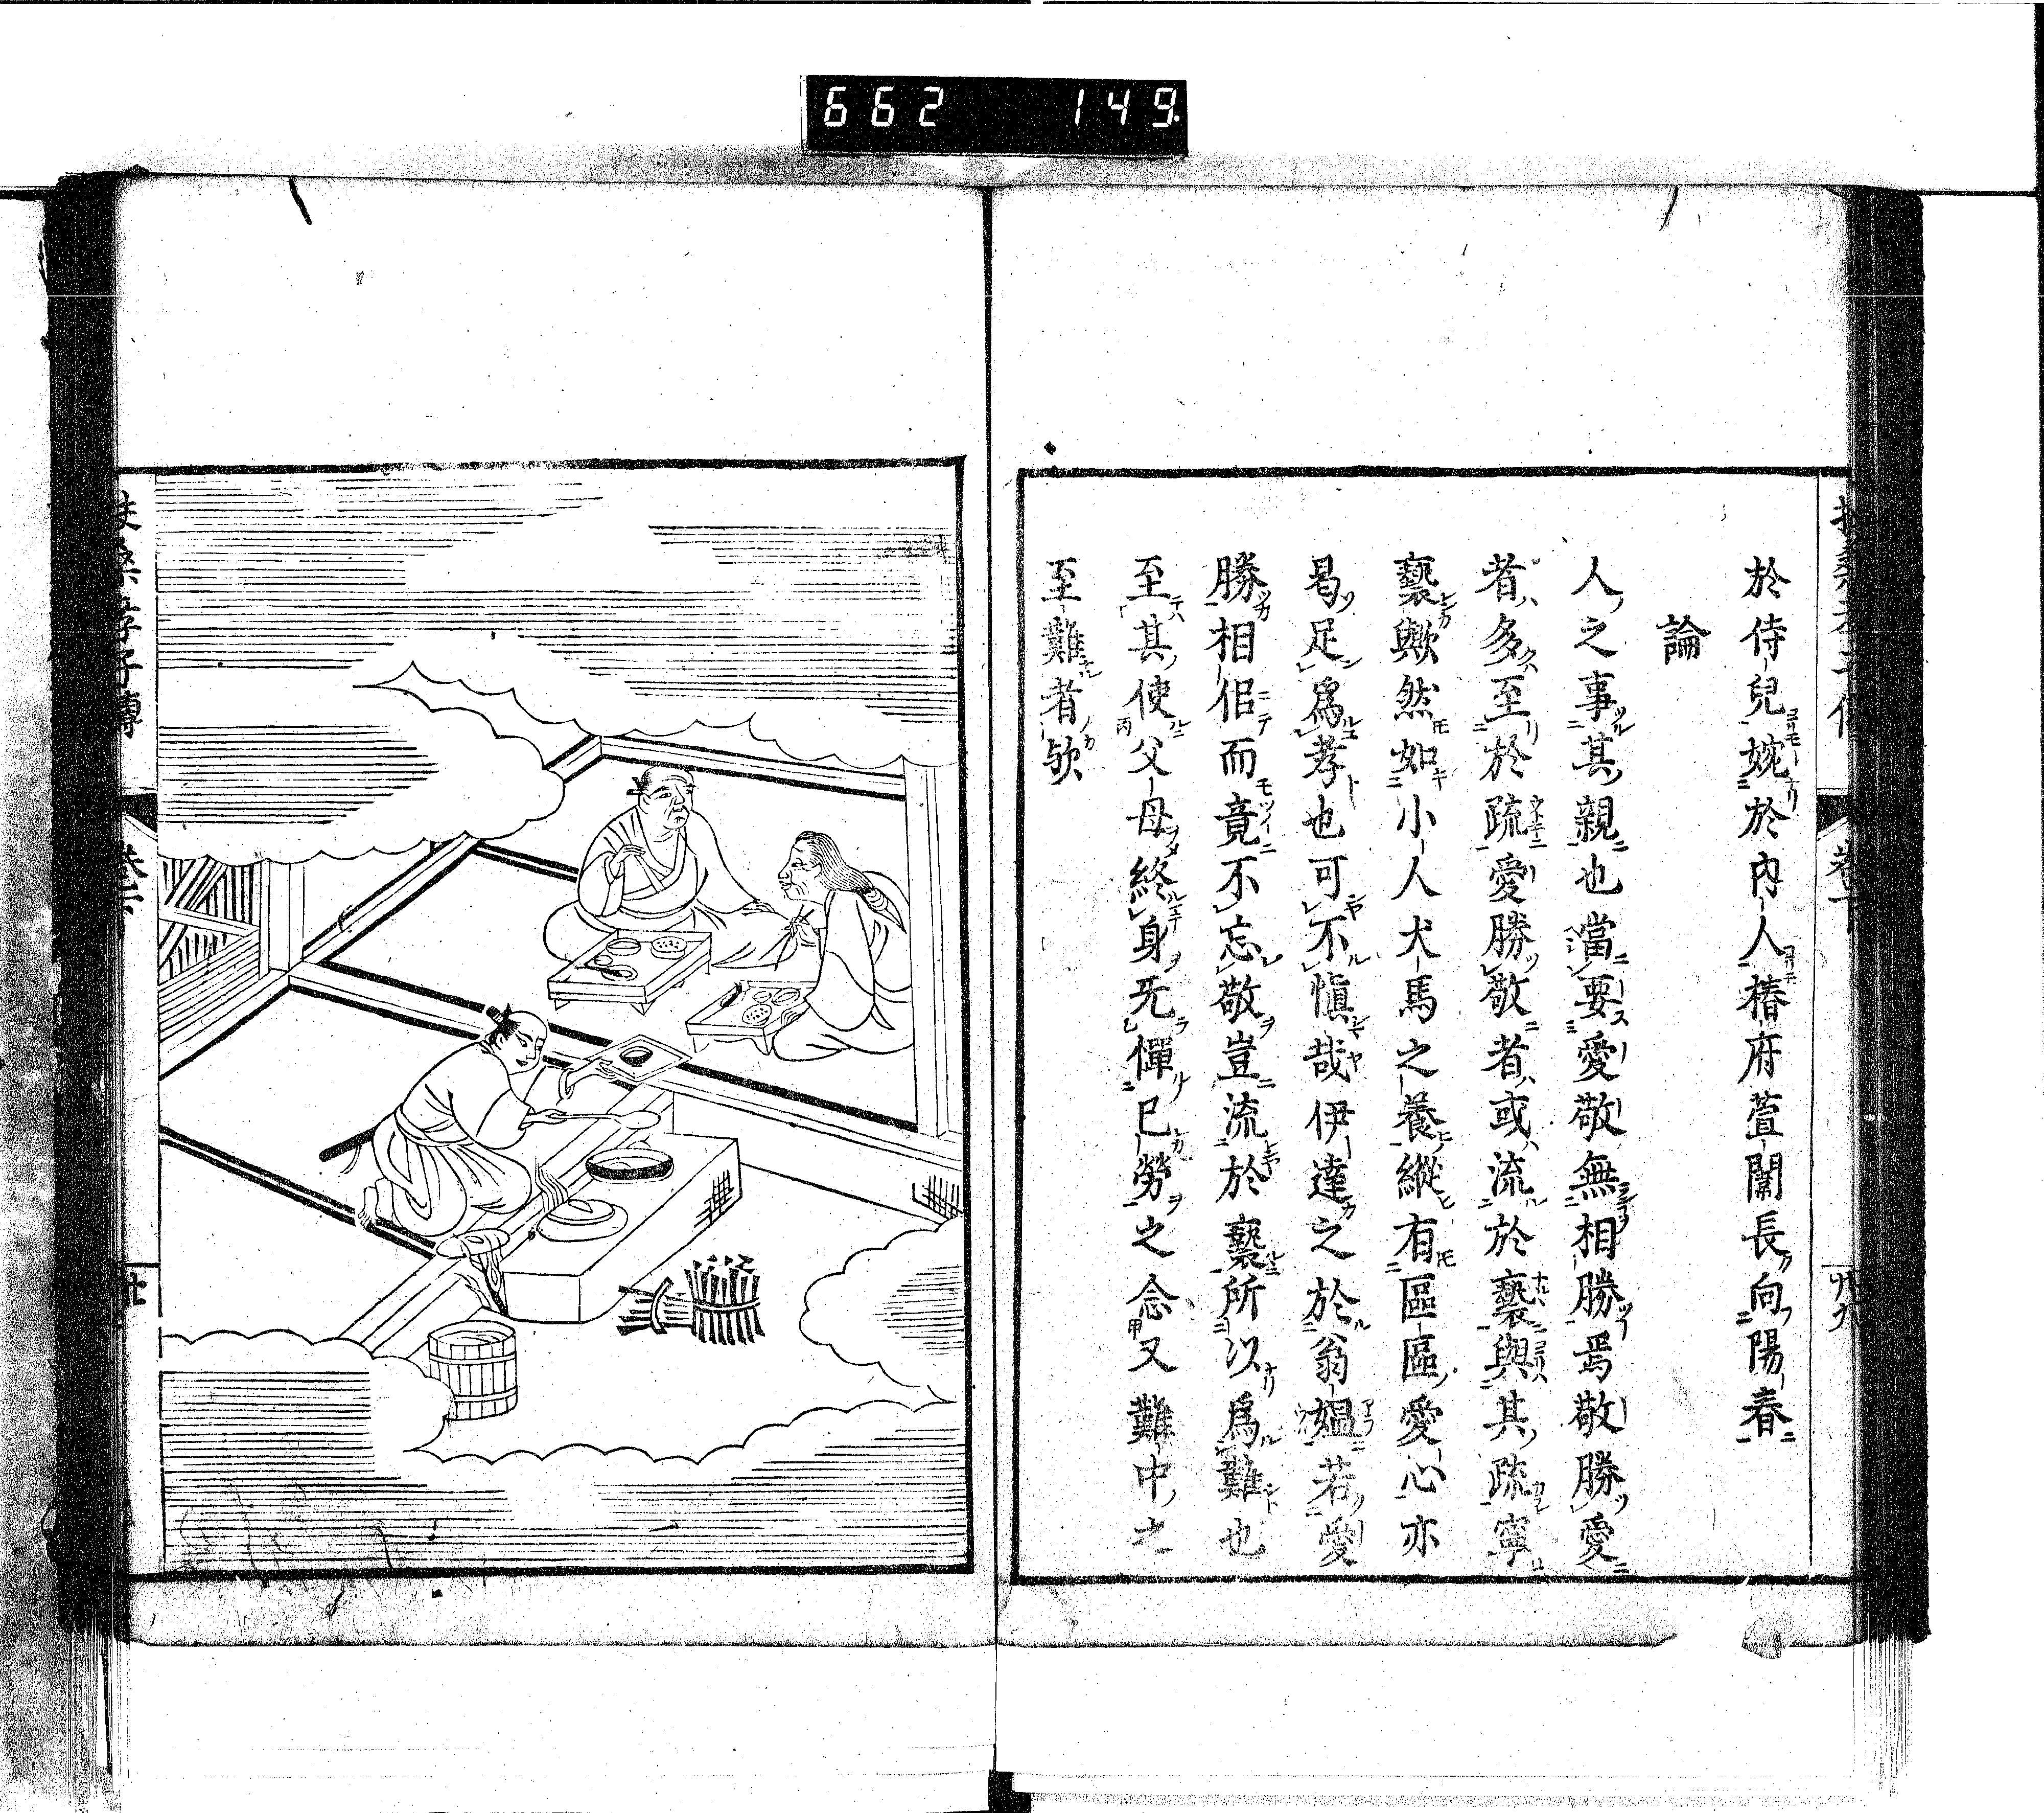 662 149
於侍兒婉於內人椿府萱闈長向陽春
論
人之事其親也當要愛敬無相勝焉敬勝愛
者多至於疏愛勝敬者或流於褻與其疏寧
褻歟然如小人犬馬之養縱有區區愛心亦
曷足爲孝也可不愼哉伊達之於翁媼若愛
勝相侶而竟不忘敬豈流於褻所以爲難也
至其使父母終身无憚已勞之念又難中之
至難者歟
扶桑孝子傳